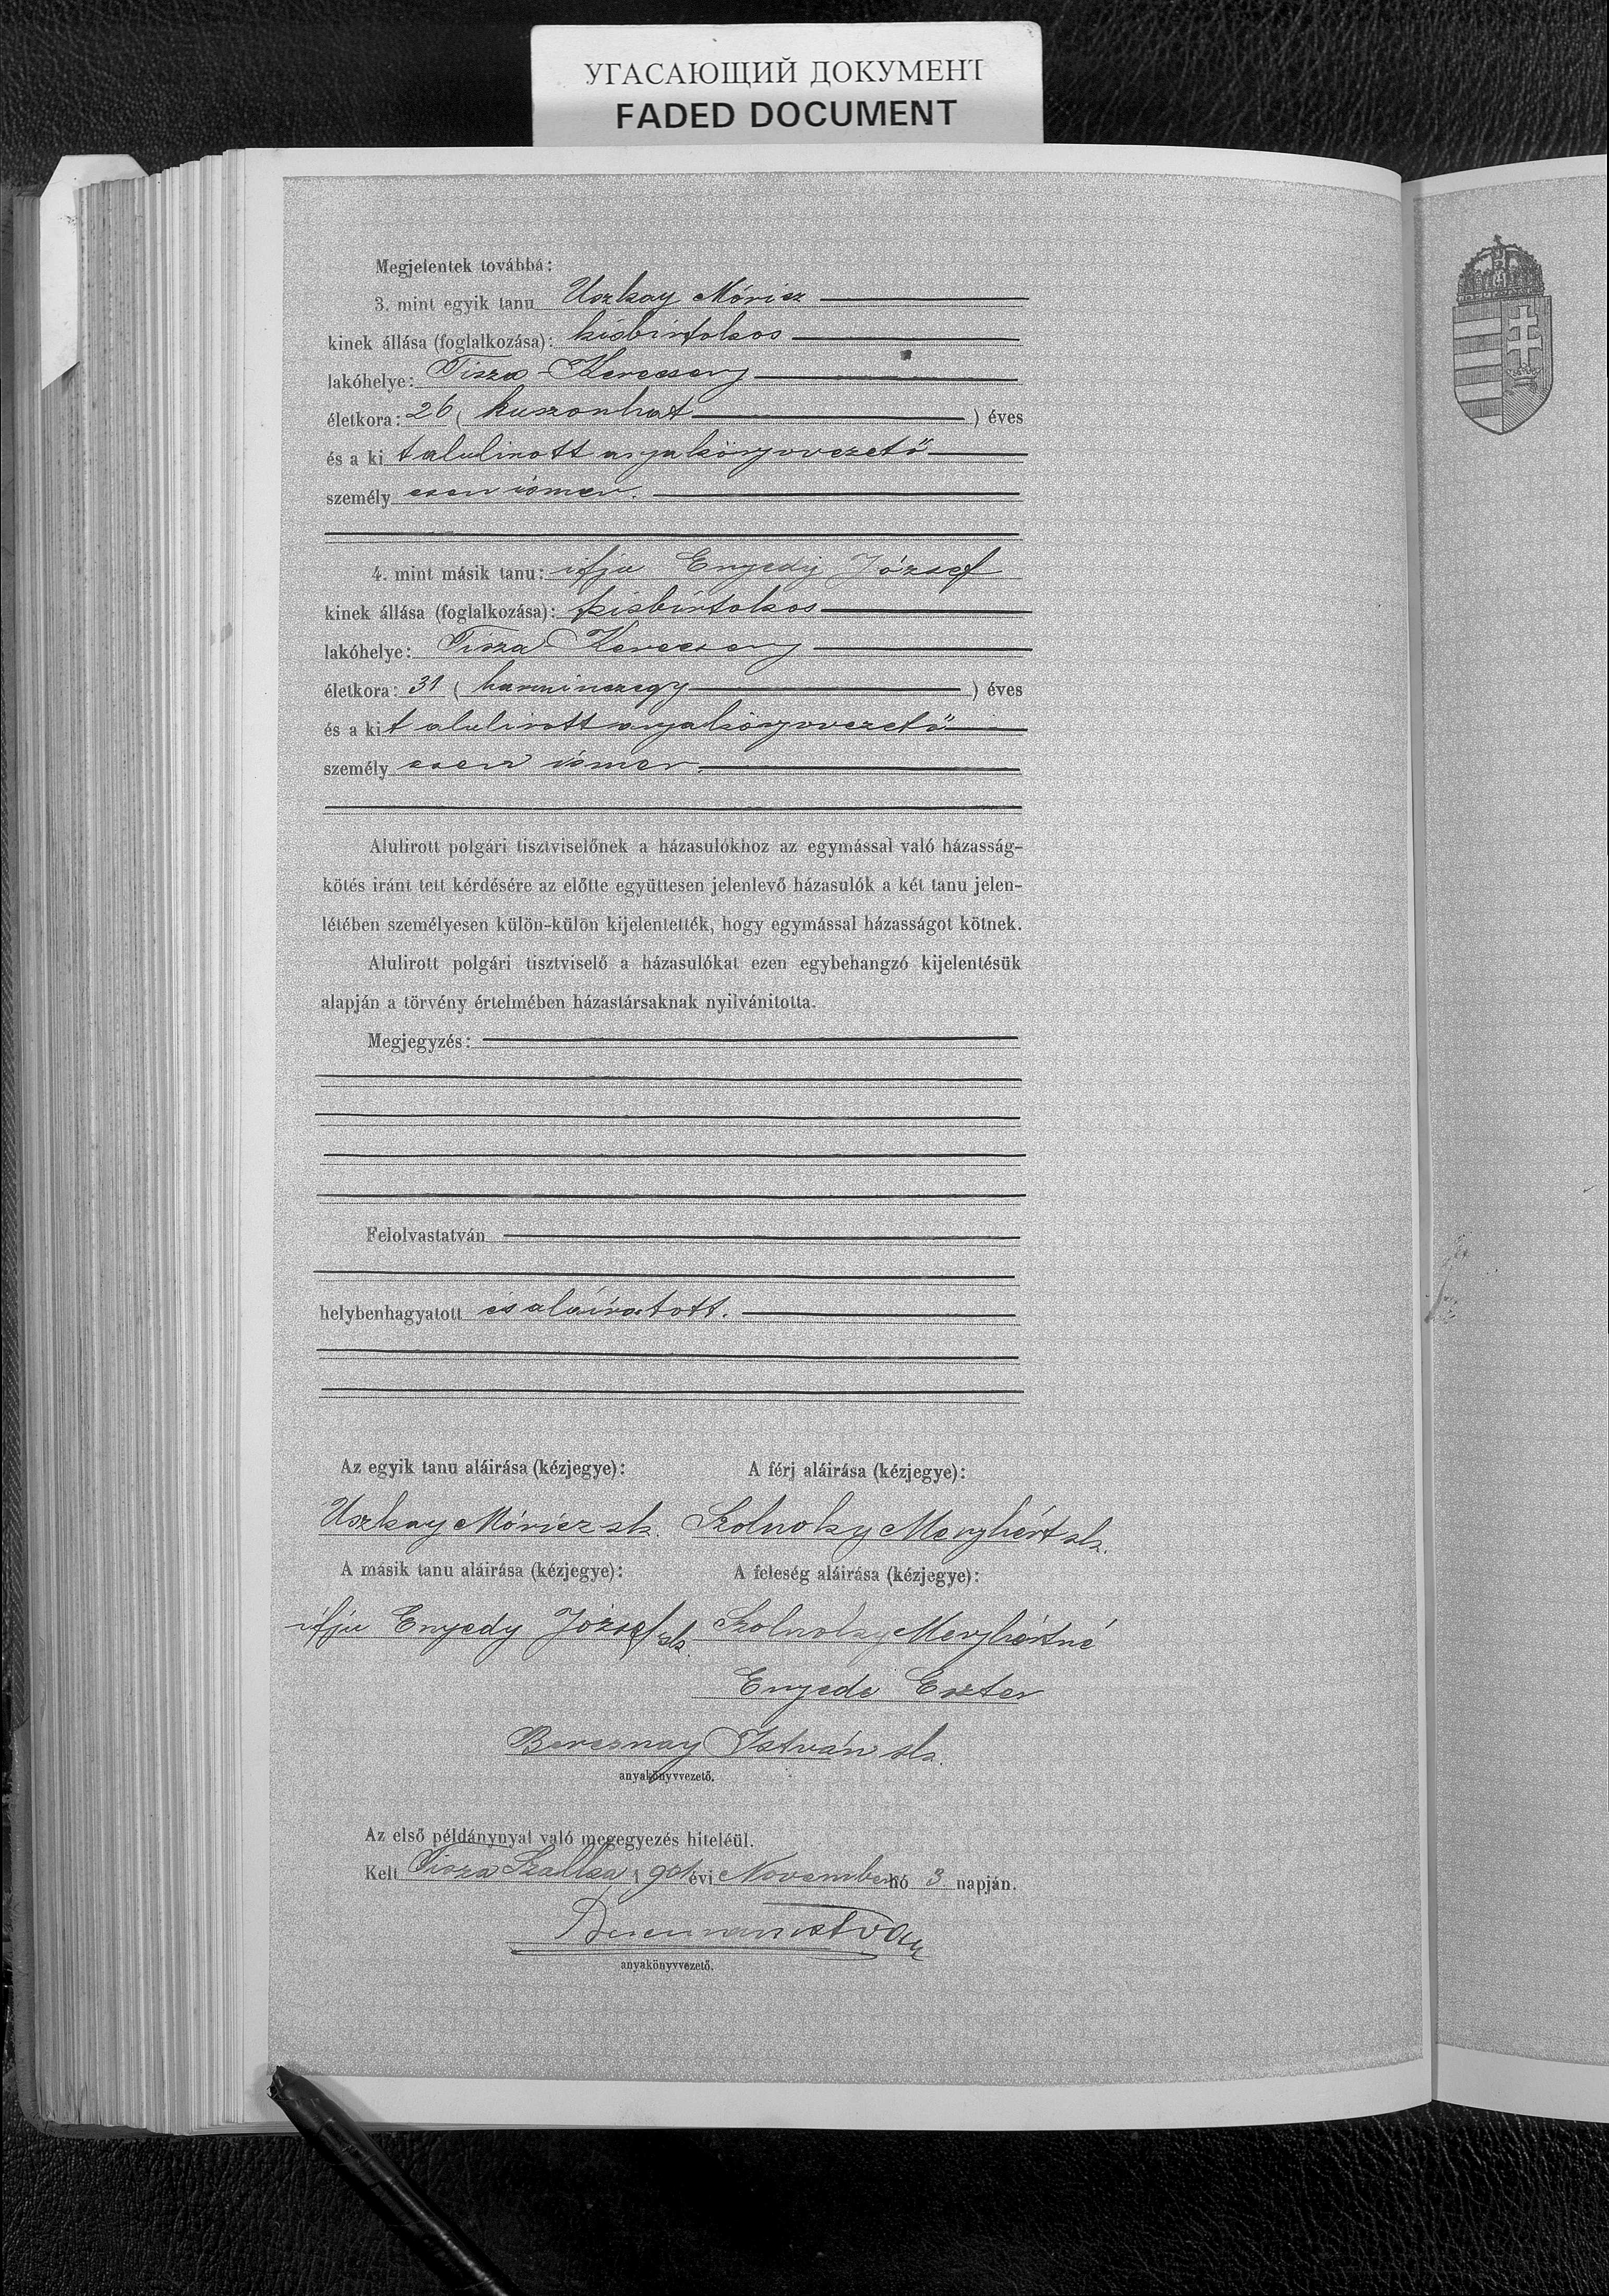 УГАСАЮЩИЙ ДОКУМЕНТ
FADED DOCUMENT
Megjelentek továbbá:
3. mint egyik tanu Uszkay Móricz
kinek állása (foglalkozása): kisbirtokos
lakóhelye: Tisza-Kerecseny
életkora: 26 ( huszonhat ) éves
és a ki t alulirott anyakönyvvezető
személy esen ismer.
4. mint másik tanu: ifju Enyedy József
kinek állása (foglalkozása): kisbirtokos
lakóhelye: Tisza-Kerecseny
életkora: 31 ( harminczegy ) éves
és a ki t alulirott anyakönyvvezető
személy esen ismer.
Alulirott polgári tisztviselőnek a házasulókhoz az egymással való házasság-
kötés iránt tett kérdésére az előtte együttesen jelenlevő házasulók a két tanu jelen-
létében személyesen külön-külön kijelentették, hogy egymással házasságot kötnek.
Alulirott polgári tisztviselő a házasulókat ezen egybehangzó kijelentésük
alapján a törvény értelmében házastársaknak nyilvánitotta.
Megjegyzés:
Felolvastatván
helybenhagyatott és aláiratott.
Az egyik tanu aláirása (kézjegye): A férj aláirása (kézjegye):
Uszkay Móricz sk. Szolnoky Menyhért sk.
A másik tanu aláirása (kézjegye): A feleség aláirása (kézjegye):
ifju Enyedy József sk. Szolnoky Menyhértné
Enyedi Eszter
Beregnay István sk.
anyakönyvvezető.
Az első példánynyal való megegyezés hiteléül.
Kelt Tisza Szalka 1901 évi November hó 3 napján.
anyakönyvvezető.